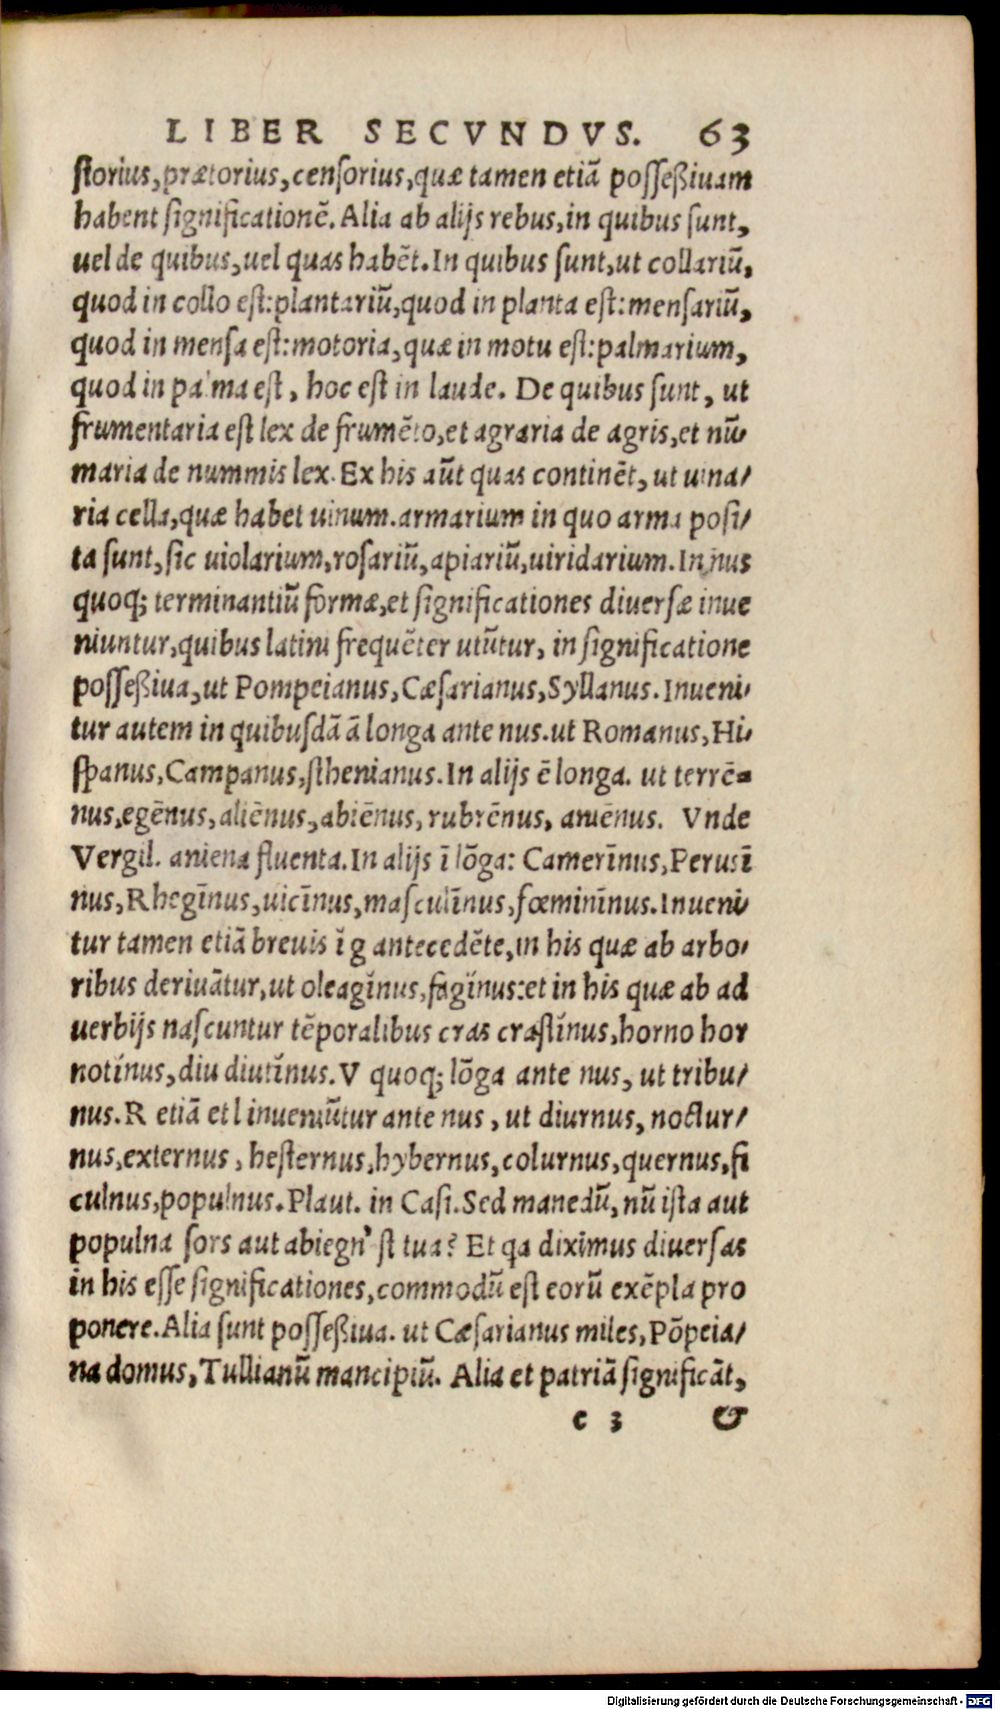 LIBER SECVNDVS. 63
ſtorius, prætorius, cenſorius, quæ tamen etiã poſſeßiuam
habent ſignificationẽ. Alia ab alijs rebus, in quibus ſunt,
uel de quibus, uel quas habẽt. In quibus ſunt, ut collariũ,
quod in collo eſt: plantariũ, quod in planta eſt: menſariũ,
quod in menſa eſt: motoria, quæ in motu eſt: palmarium,
quod in palma eſt, hoc eſt in laude. De quibus ſunt, ut
frumentaria eſt lex de frumẽto, et agraria de agris, et nũ/
maria de nummis lex. Ex his aũt quas continẽt, ut uina/
ria cella, quæ habet uinum. armarium in quo arma poſi/
ta ſunt, ſic uiolarium, roſariũ, apiariũ, uiridarium. In nus
quoq; terminantiũ formæ, et ſignificationes diuerſæ inue
niuntur, quibus latini frequẽter utũtur, in ſignificatione
poſſeßiua, ut Pompeianus, Cæſarianus, Syllanus. Inueni/
tur autem in quibuſdã ā longa ante nus. ut Romanus, Hi/
ſpanus, Campanus, ſthenianus. In alijs ē longa. ut terrē=
nus, egēnus, aliēnus, abiēnus, rubrēnus, aniēnus. Vnde
Vergil. aniena fluenta. In alijs ī lõga: Camerīnus, Peruſī
nus, Rhegīnus, uicīnus, maſculīnus, fœminīnus. Inueni/
tur tamen etiã breuis ĭ g antecedẽte, in his quæ ab arbo/
ribus deriuãtur, ut oleagĭnus, fagĭnus: et in his quæ ab ad
uerbijs naſcuntur tẽporalibus cras craſtĭnus, horno hor
notĭnus, diu diutĭnus. V quoq; lõga ante nus, ut tribu/
nus. R etiã et l inueniũtur ante nus, ut diurnus, noctur/
nus, externus, heſternus, hybernus, colurnus, quernus, fi
culnus, populnus. Plaut. in Caſi. Sed manedũ, nũ iſta aut
populna ſors aut abiegn' ſt tua? Et qa diximus diuerſas
in his eſſe ſignificationes, commodũ eſt eorũ exẽpla pro
ponere. Alia ſunt poſſeßiua. ut Cæſarianus miles, Põpeia/
na domus, Tullianũ mancipiũ. Alia et patriã ſignificãt,
c 3 &
Digitalisierung gefördert durch die Deutsche Forschungsgemeinschaft - DFG